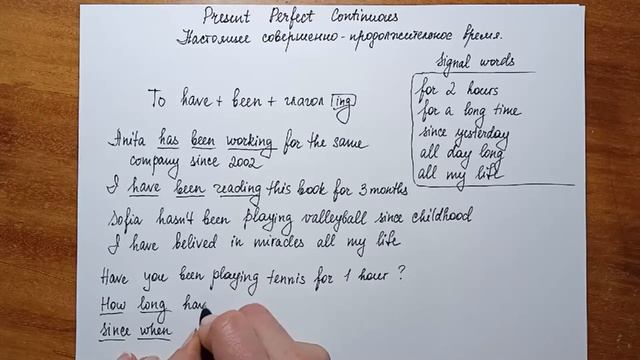 Present Perfect Continuous
Настоящее совершенно-продолжительное время.
Signal words
for 2 hours
for a long time
since yesterday
all day long
all my life
To have + been + глагол ing
Anita has been working for the same
company since 2002
I have been reading this book for 3 months
Sofia hasn't been playing valleyball since childhood
I have belived in miracles all my life
Have you been playing tennis for 1 hour?
How long hav
since when